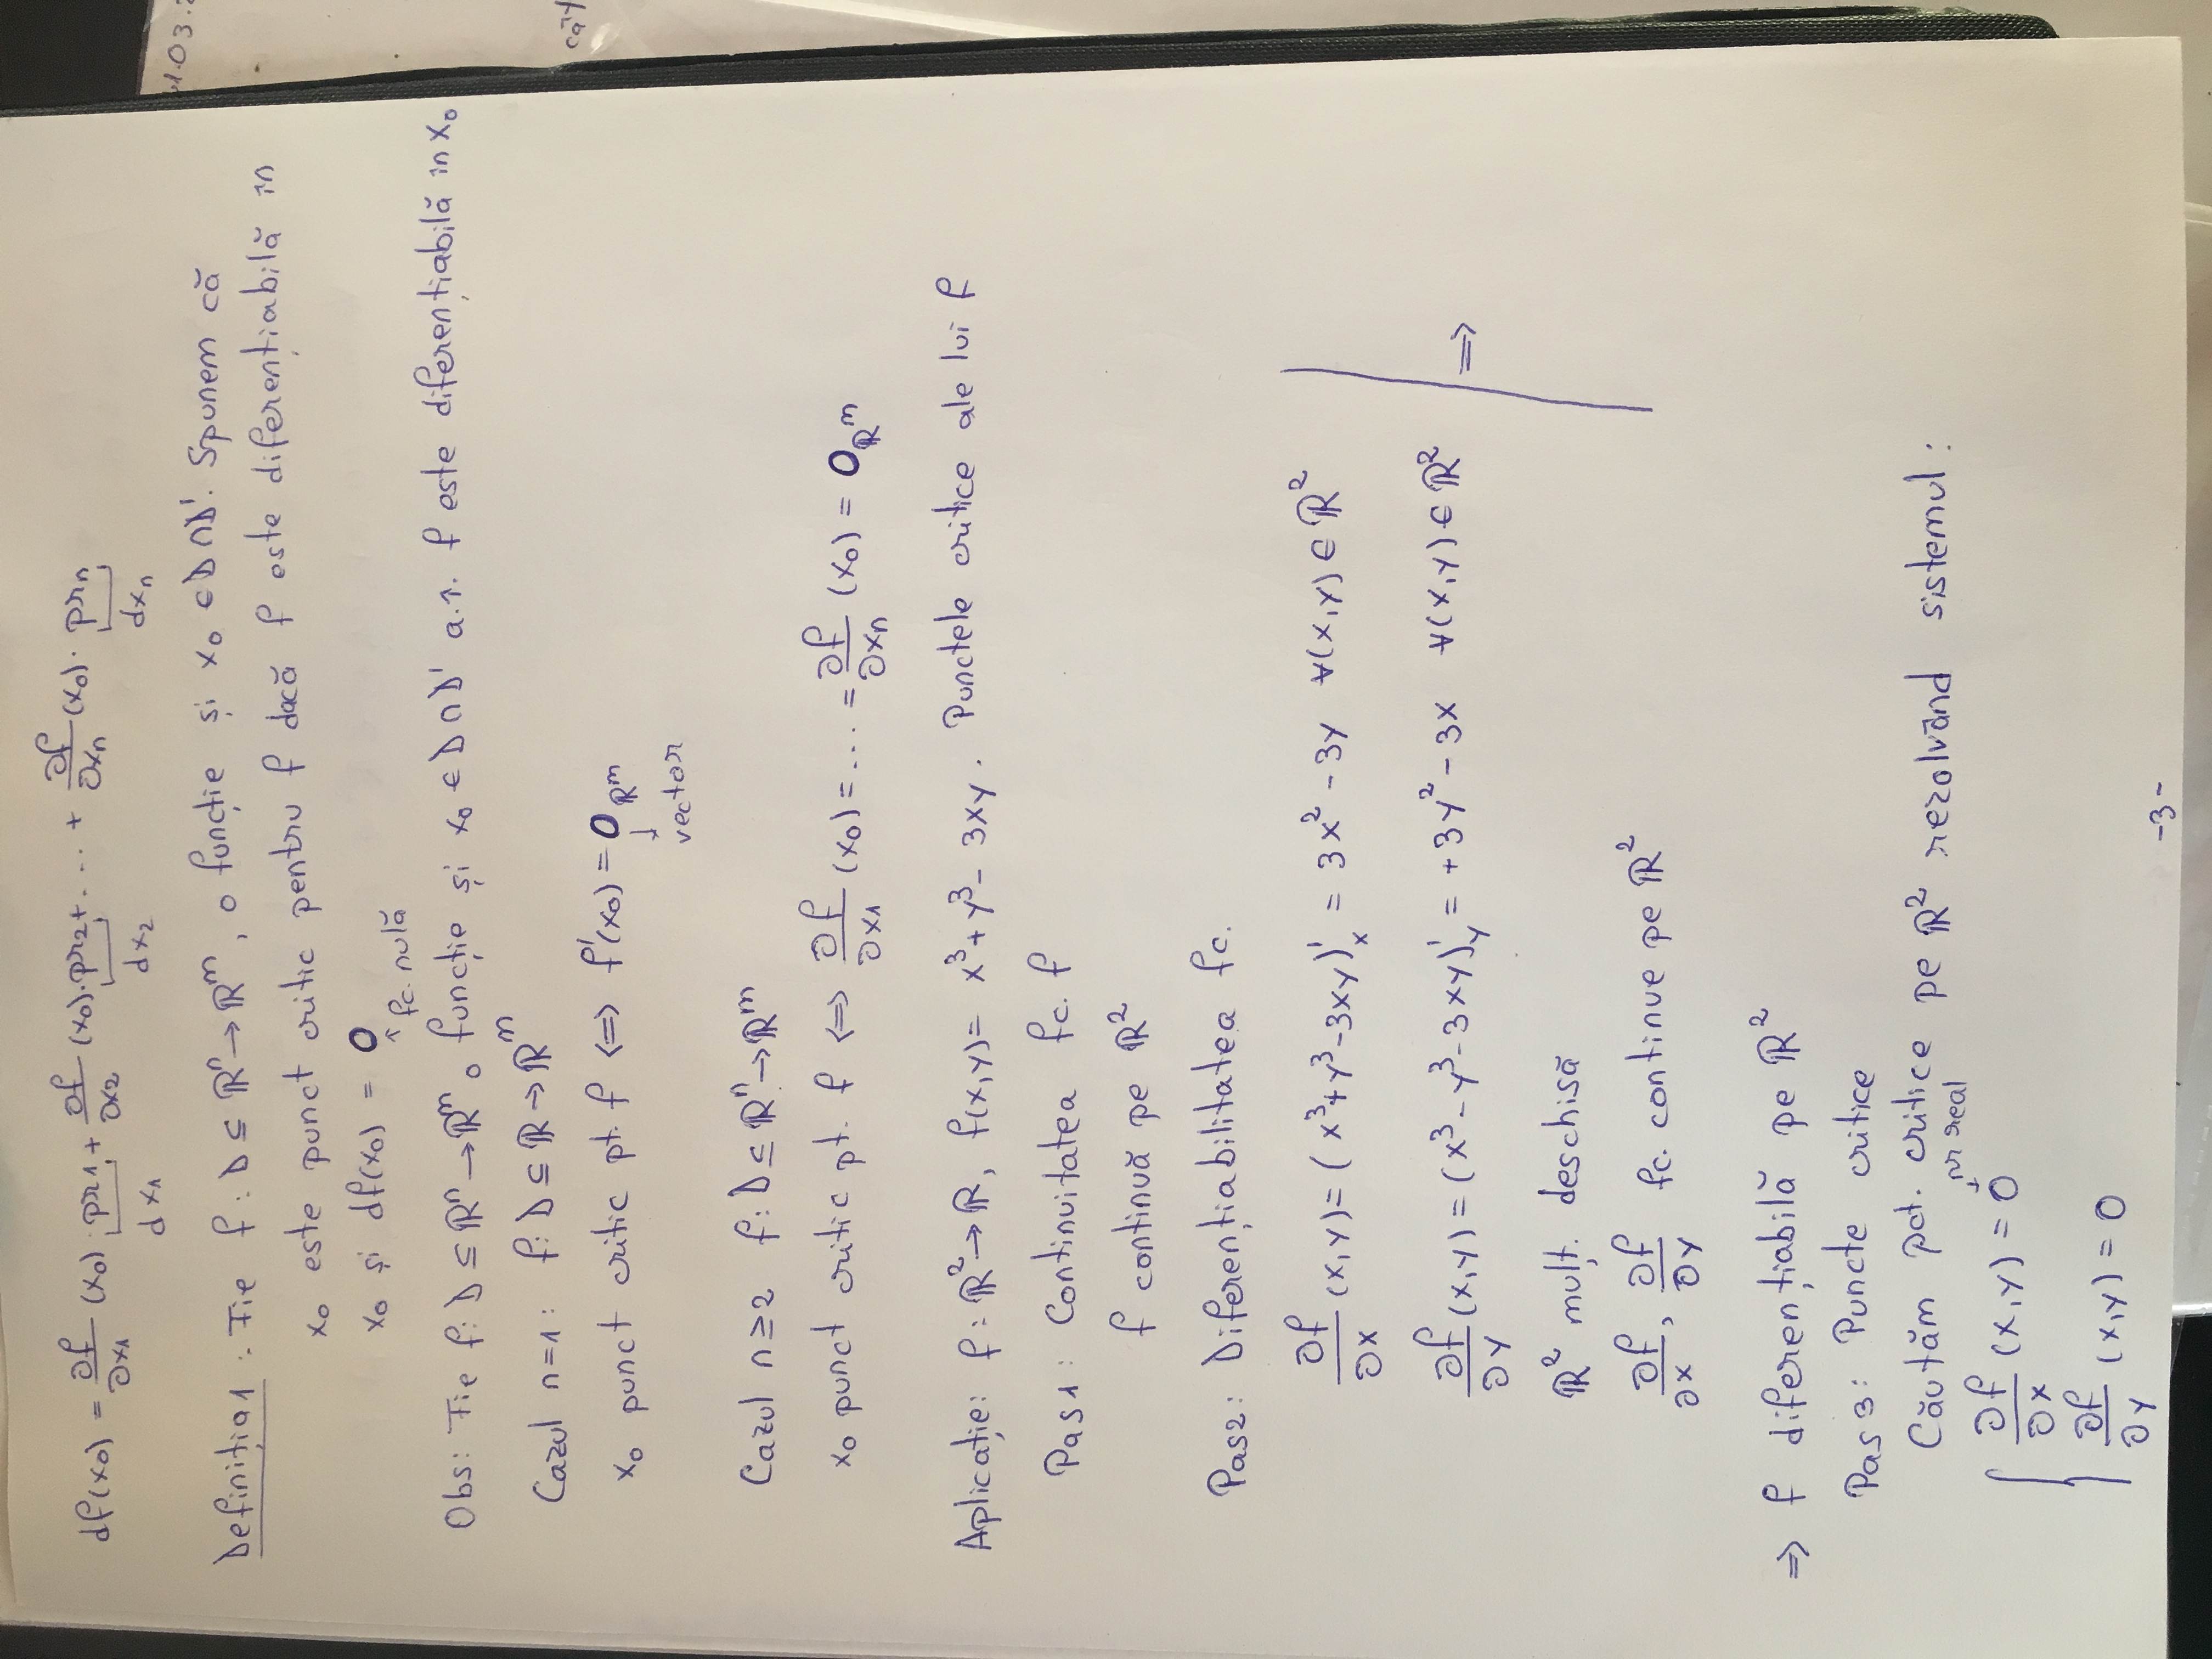 df(x₀) = ∂f/∂x₁ (x₀) · pr₁ + ∂f/∂x₂ (x₀) · pr₂ + . ... + ∂f/∂xₙ (x₀) · prₙ
dx₁ dx₂ dxₙ
Definiția 1 : Fie f : D ⊆ ℝⁿ → ℝᵐ, o funcție și x₀ ∈ D ∩ D'. Spunem că
x₀ este punct critic pentru f dacă f este diferențiabilă în
x₀ și df(x₀) = 0
↑ fc. nulă
Obs: Fie f: D ⊆ ℝⁿ → ℝᵐ o funcție și x₀ ∈ D ∩ D' a.î. f este diferențiabilă în x₀
Cazul n=1 : f: D ⊆ ℝ → ℝᵐ
x₀ punct critic pt. f ⇔ f'(x₀) = 0_ℝᵐ
↓
vector
Cazul n ≥ 2 f: D ⊆ ℝⁿ → ℝᵐ
x₀ punct critic pt. f ⇔ ∂f/∂x₁ (x₀) = ... = ∂f/∂xₙ (x₀) = 0_ℝᵐ
Aplicație: f : ℝ² → ℝ, f(x,y) = x³ + y³ - 3xy . Punctele critice ale lui f
Pas 1 : Continuitatea fc. f
f continuă pe ℝ²
Pas 2 : Diferențiabilitatea fc.
∂f/∂x (x,y) = ( x³ + y³ - 3xy )'ₓ = 3x² - 3y ∀(x,y) ∈ ℝ²
∂f/∂y (x,y) = ( x³ - y³ - 3xy )'_y = +3y² - 3x ∀(x,y) ∈ ℝ² ⇒
ℝ² mulț. deschisă
∂f/∂x , ∂f/∂y fc. continue pe ℝ²
⇒ f diferențiabilă pe ℝ²
Pas 3 : Puncte critice
Căutăm pct. critice pe ℝ² rezolvând sistemul :
nr real
↓
{ ∂f/∂x (x,y) = 0
∂f/∂y (x,y) = 0
-3-